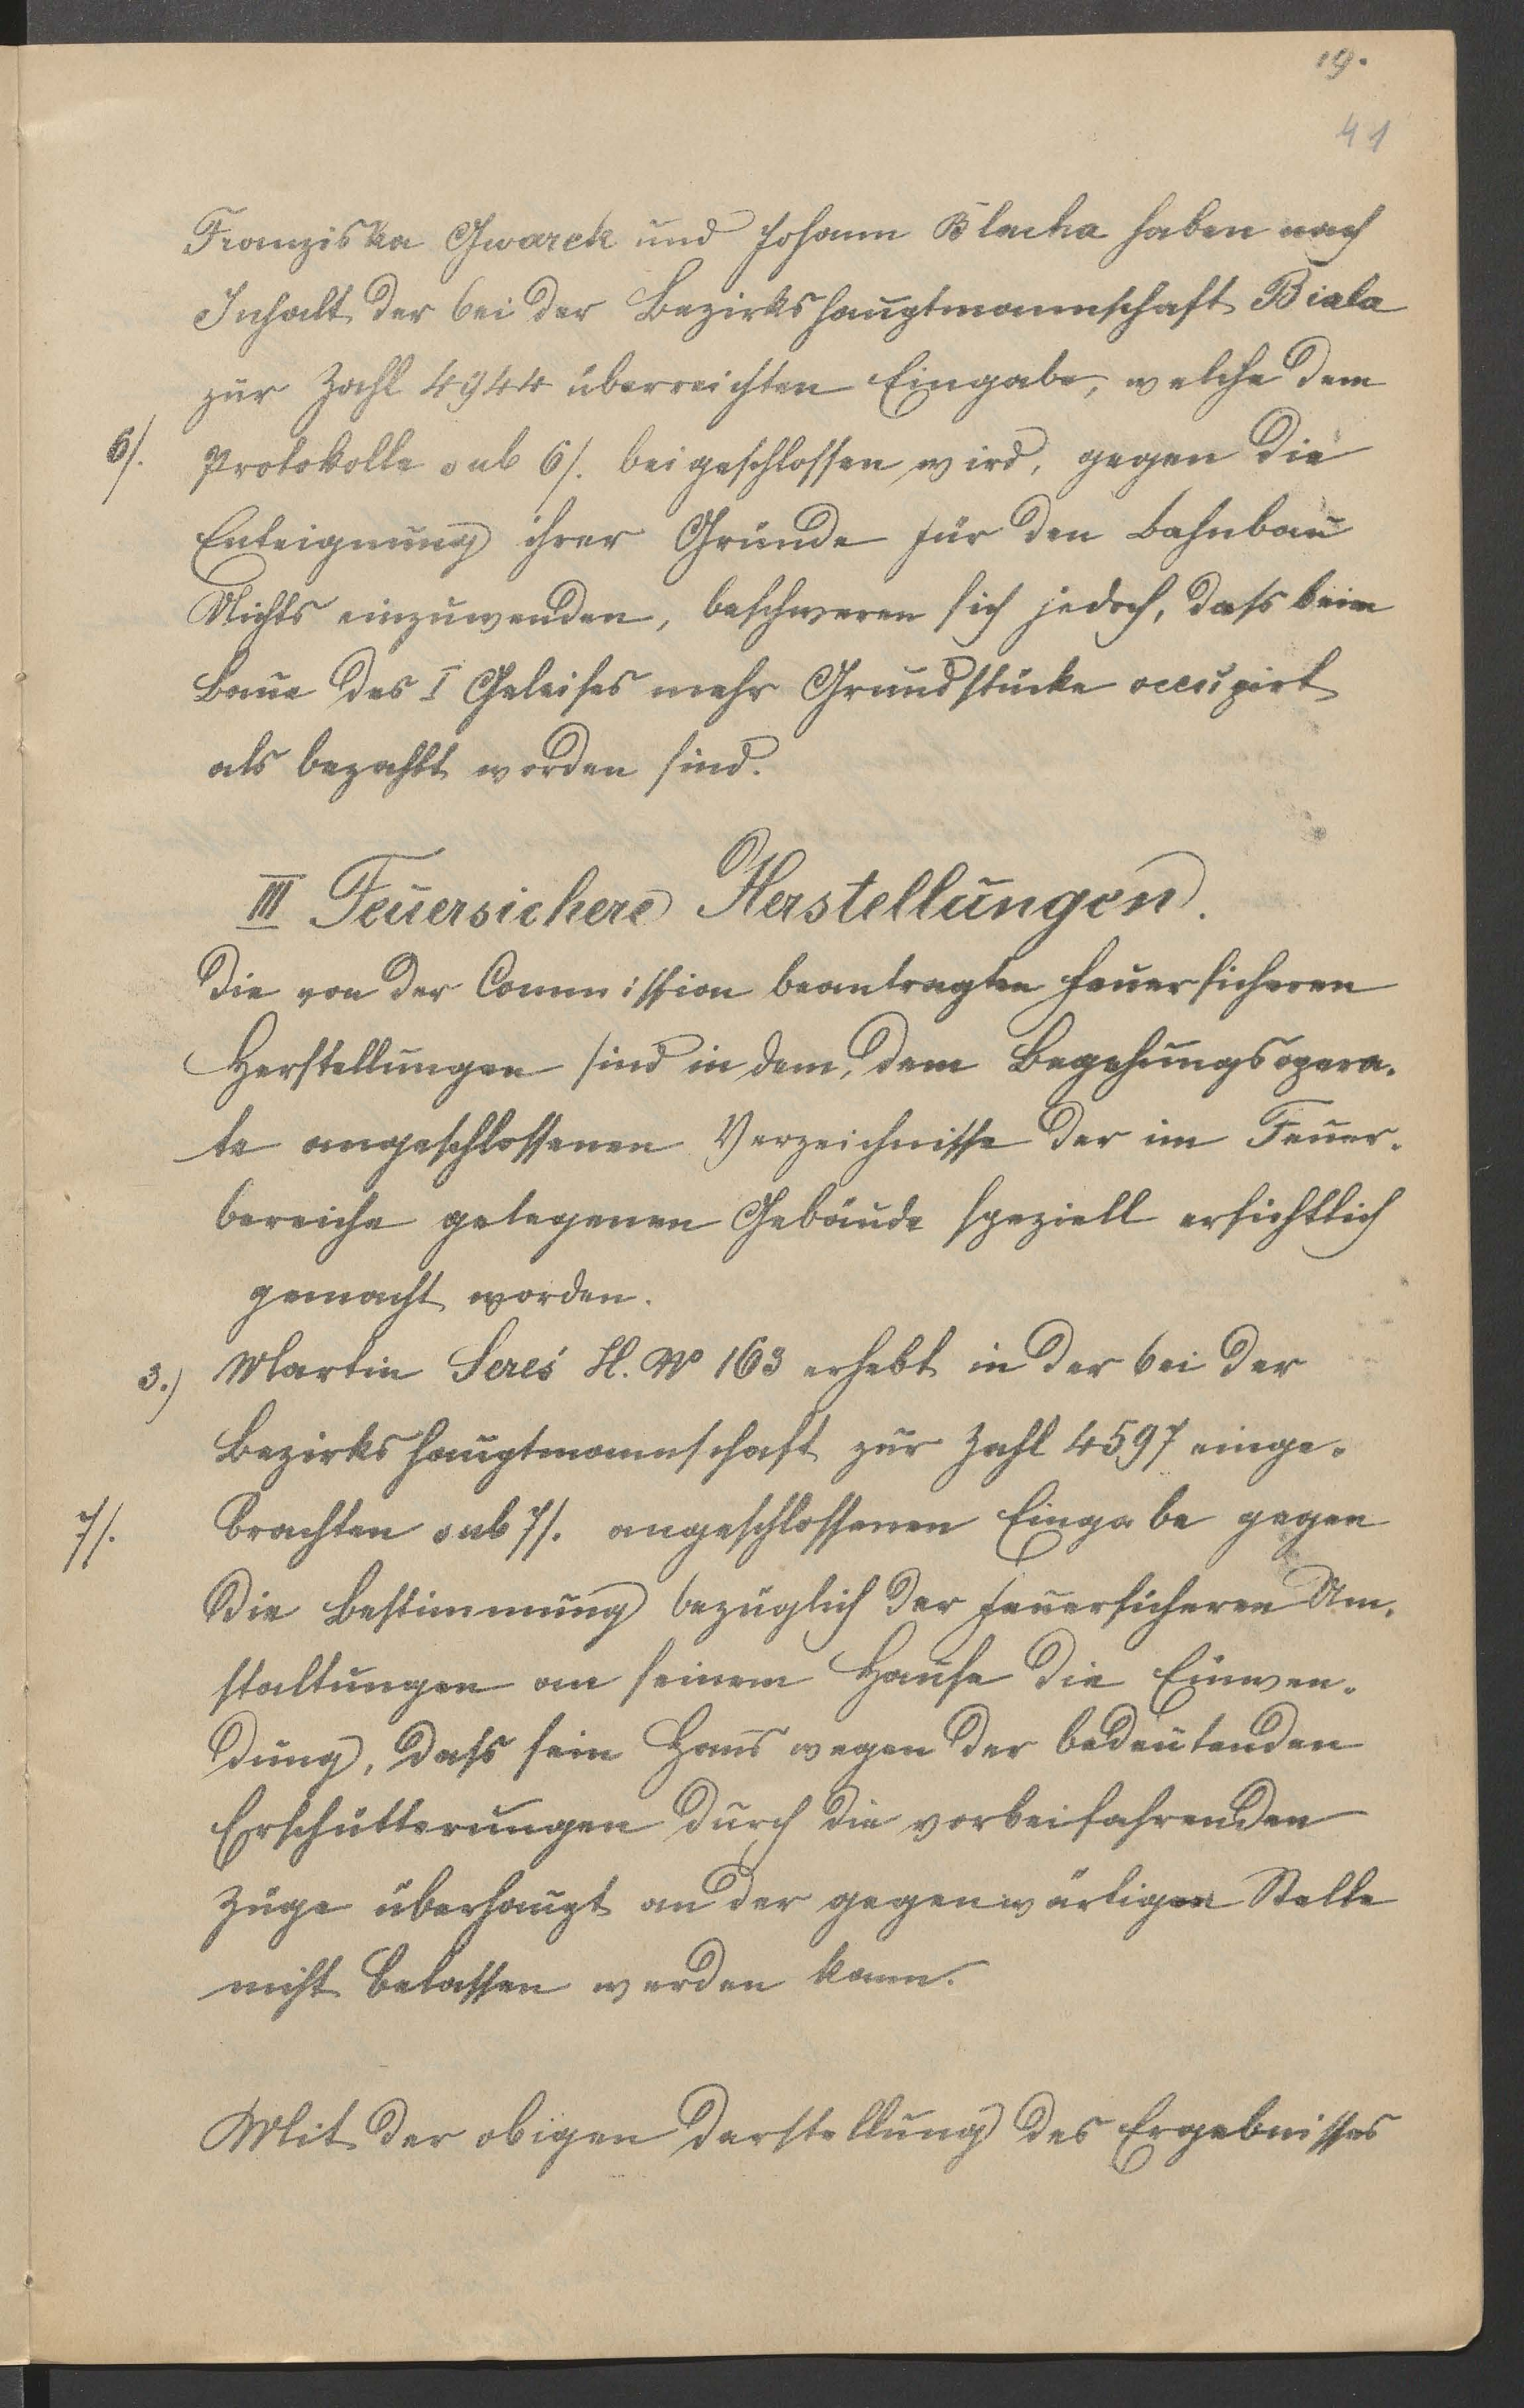 19.
41
Franziska Gwarek und Johann Blacha haben nach
Inhalt der bei der Bezirkshauptmannschaft Biala
zur Zahl 4944 überreichten Eingabe, welche dem
6/. Protokolle sub 6/. beigeschlossen wird, gegen die
Enteignung ihrer Gründe für den Bahnbau
Nichts einzuwenden, beschweren sich jedoch, dass beim
Baue des I Geleises mehr Grundstücke occupirt
als bezahlt worden sind.
III Feuersichere Herstellungen.
Die von der Commission beantragten feuersicheren
Herstellungen sind in dem, dem Begehungsopera-
te angeschlossenen Verzeichnisse der im Feuer-
bereiche gelegenen Gebäude speziell ersichtlich
gemacht worden.
3.) Martin Sereś H. No 163 erhebt in der bei der
Bezirkshauptmannschaft zur Zahl 4597 einge-
7/. brachten sub 7/. angeschlossenen Eingabe gegen
die Bestimmung bezüglich der feuersicheren Um-
staltungen an seinem Hause die Einwen-
dung, dass sein Haus wegen der bedeutenden
Erschütterungen durch die vorbeifahrenden
Züge überhaupt an der gegenwärtigen Stelle
nicht belassen werden kann.
Mit der obigen Darstellung des Ergebnisses